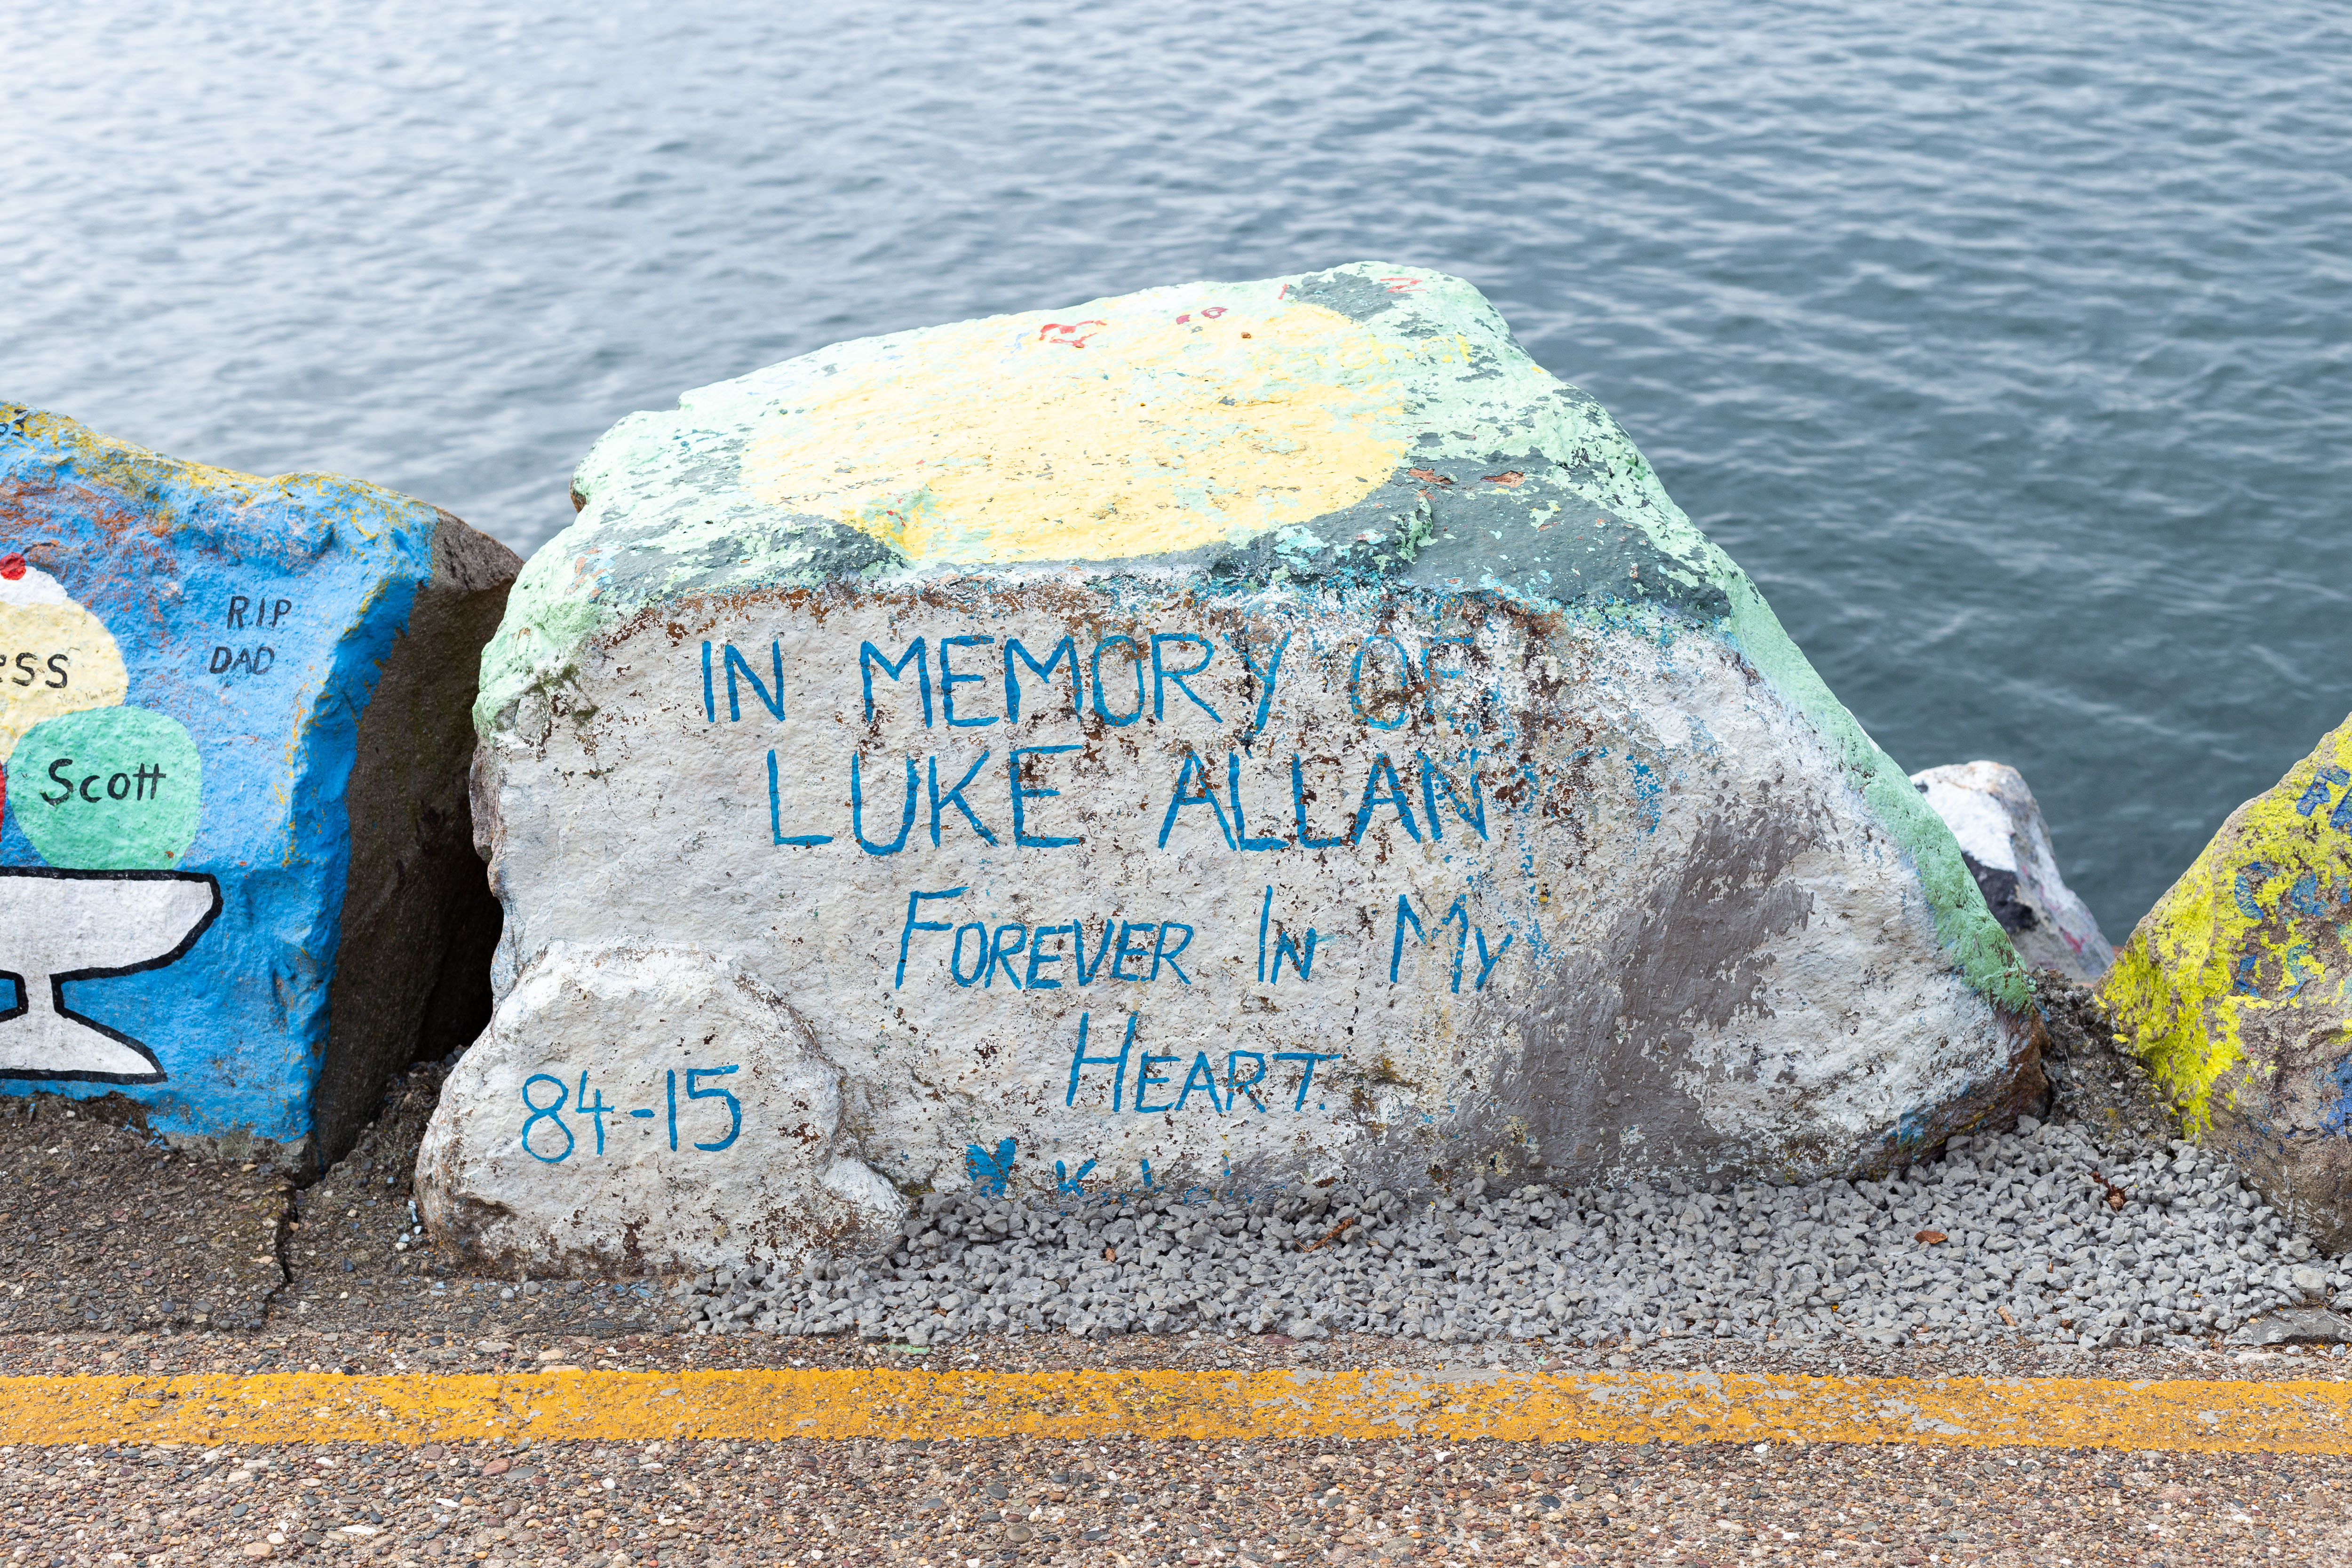 R.I.P
DAD
Scott
IN MEMORY OF
LUKE ALLAN
FOREVER IN MY
HEART.
84-15